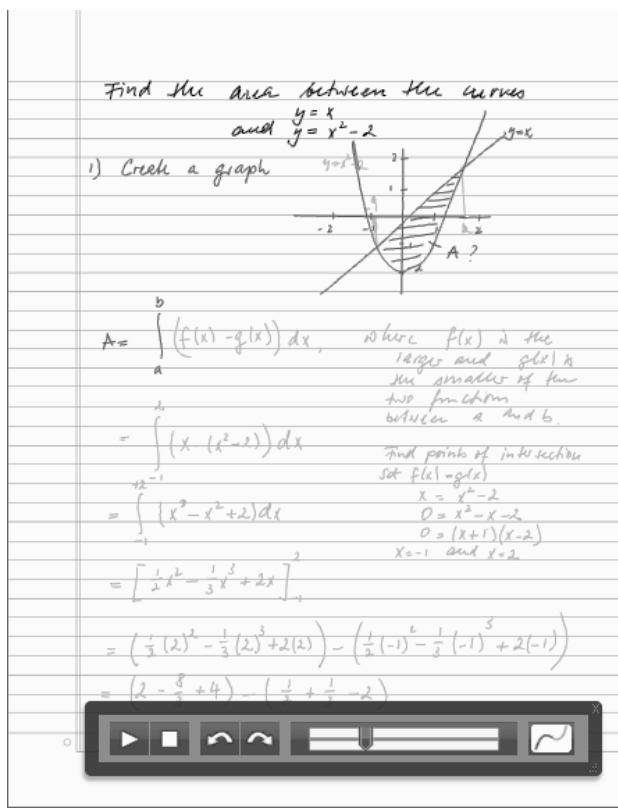 Find the area between the curves
y = x
and y = x² - 2
1) Create a graph
y=x²-2
y=x
2
1
-2
-1
1
2
a
b
A ?
2
A = ∫ₐᵇ (f(x) - g(x)) dx,
where f(x) is the
larger and g(x) is
the smaller of the
two functions
between a and b.
= ∫₋₁² (x - (x²-2)) dx
Find points of intersection
set f(x) = g(x)
x = x² - 2
0 = x² - x - 2
0 = (x+1)(x-2)
x = -1 and x = 2
= ∫₋₁⁺² (x - x² + 2) dx
= [½x² - ⅓x³ + 2x]₋₁²
= (½(2)² - ⅓(2)³ + 2(2)) - (½(-1)² - ⅓(-1)³ + 2(-1))
= (2 - 8/3 + 4) - (½ + ⅓ - 2)